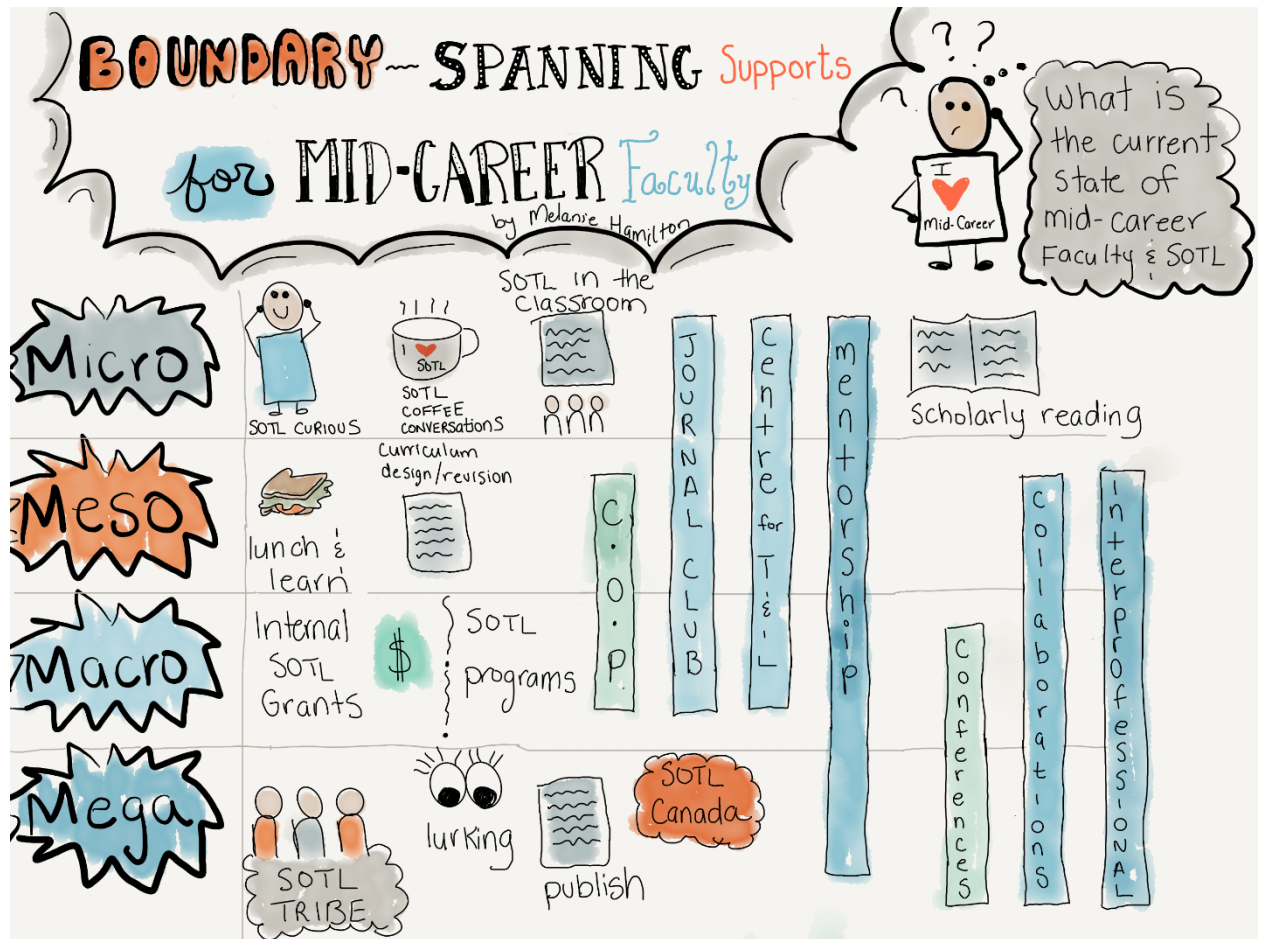 BOUNDARY-SPANNING Supports
for MID-CAREER Faculty
by Melanie Hamilton
? ?
I
Mid-Career
What is
the current
state of
mid-career
Faculty & SOTL
Micro
SOTL CURIOUS
I
SOTL
SOTL
COFFEE
CONVERSATIONS
SOTL in the
Classroom
JOURNAL CLUB
Centre for T & L
mentorship
Scholarly reading
Meso
lunch &
learn
Curriculum
design/revision
C.O.P
Collaborations
Interprofessional
Macro
Internal
SOTL
Grants
$
SOTL
programs
Conferences
Mega
SOTL
TRIBE
lurking
publish
SOTL
Canada